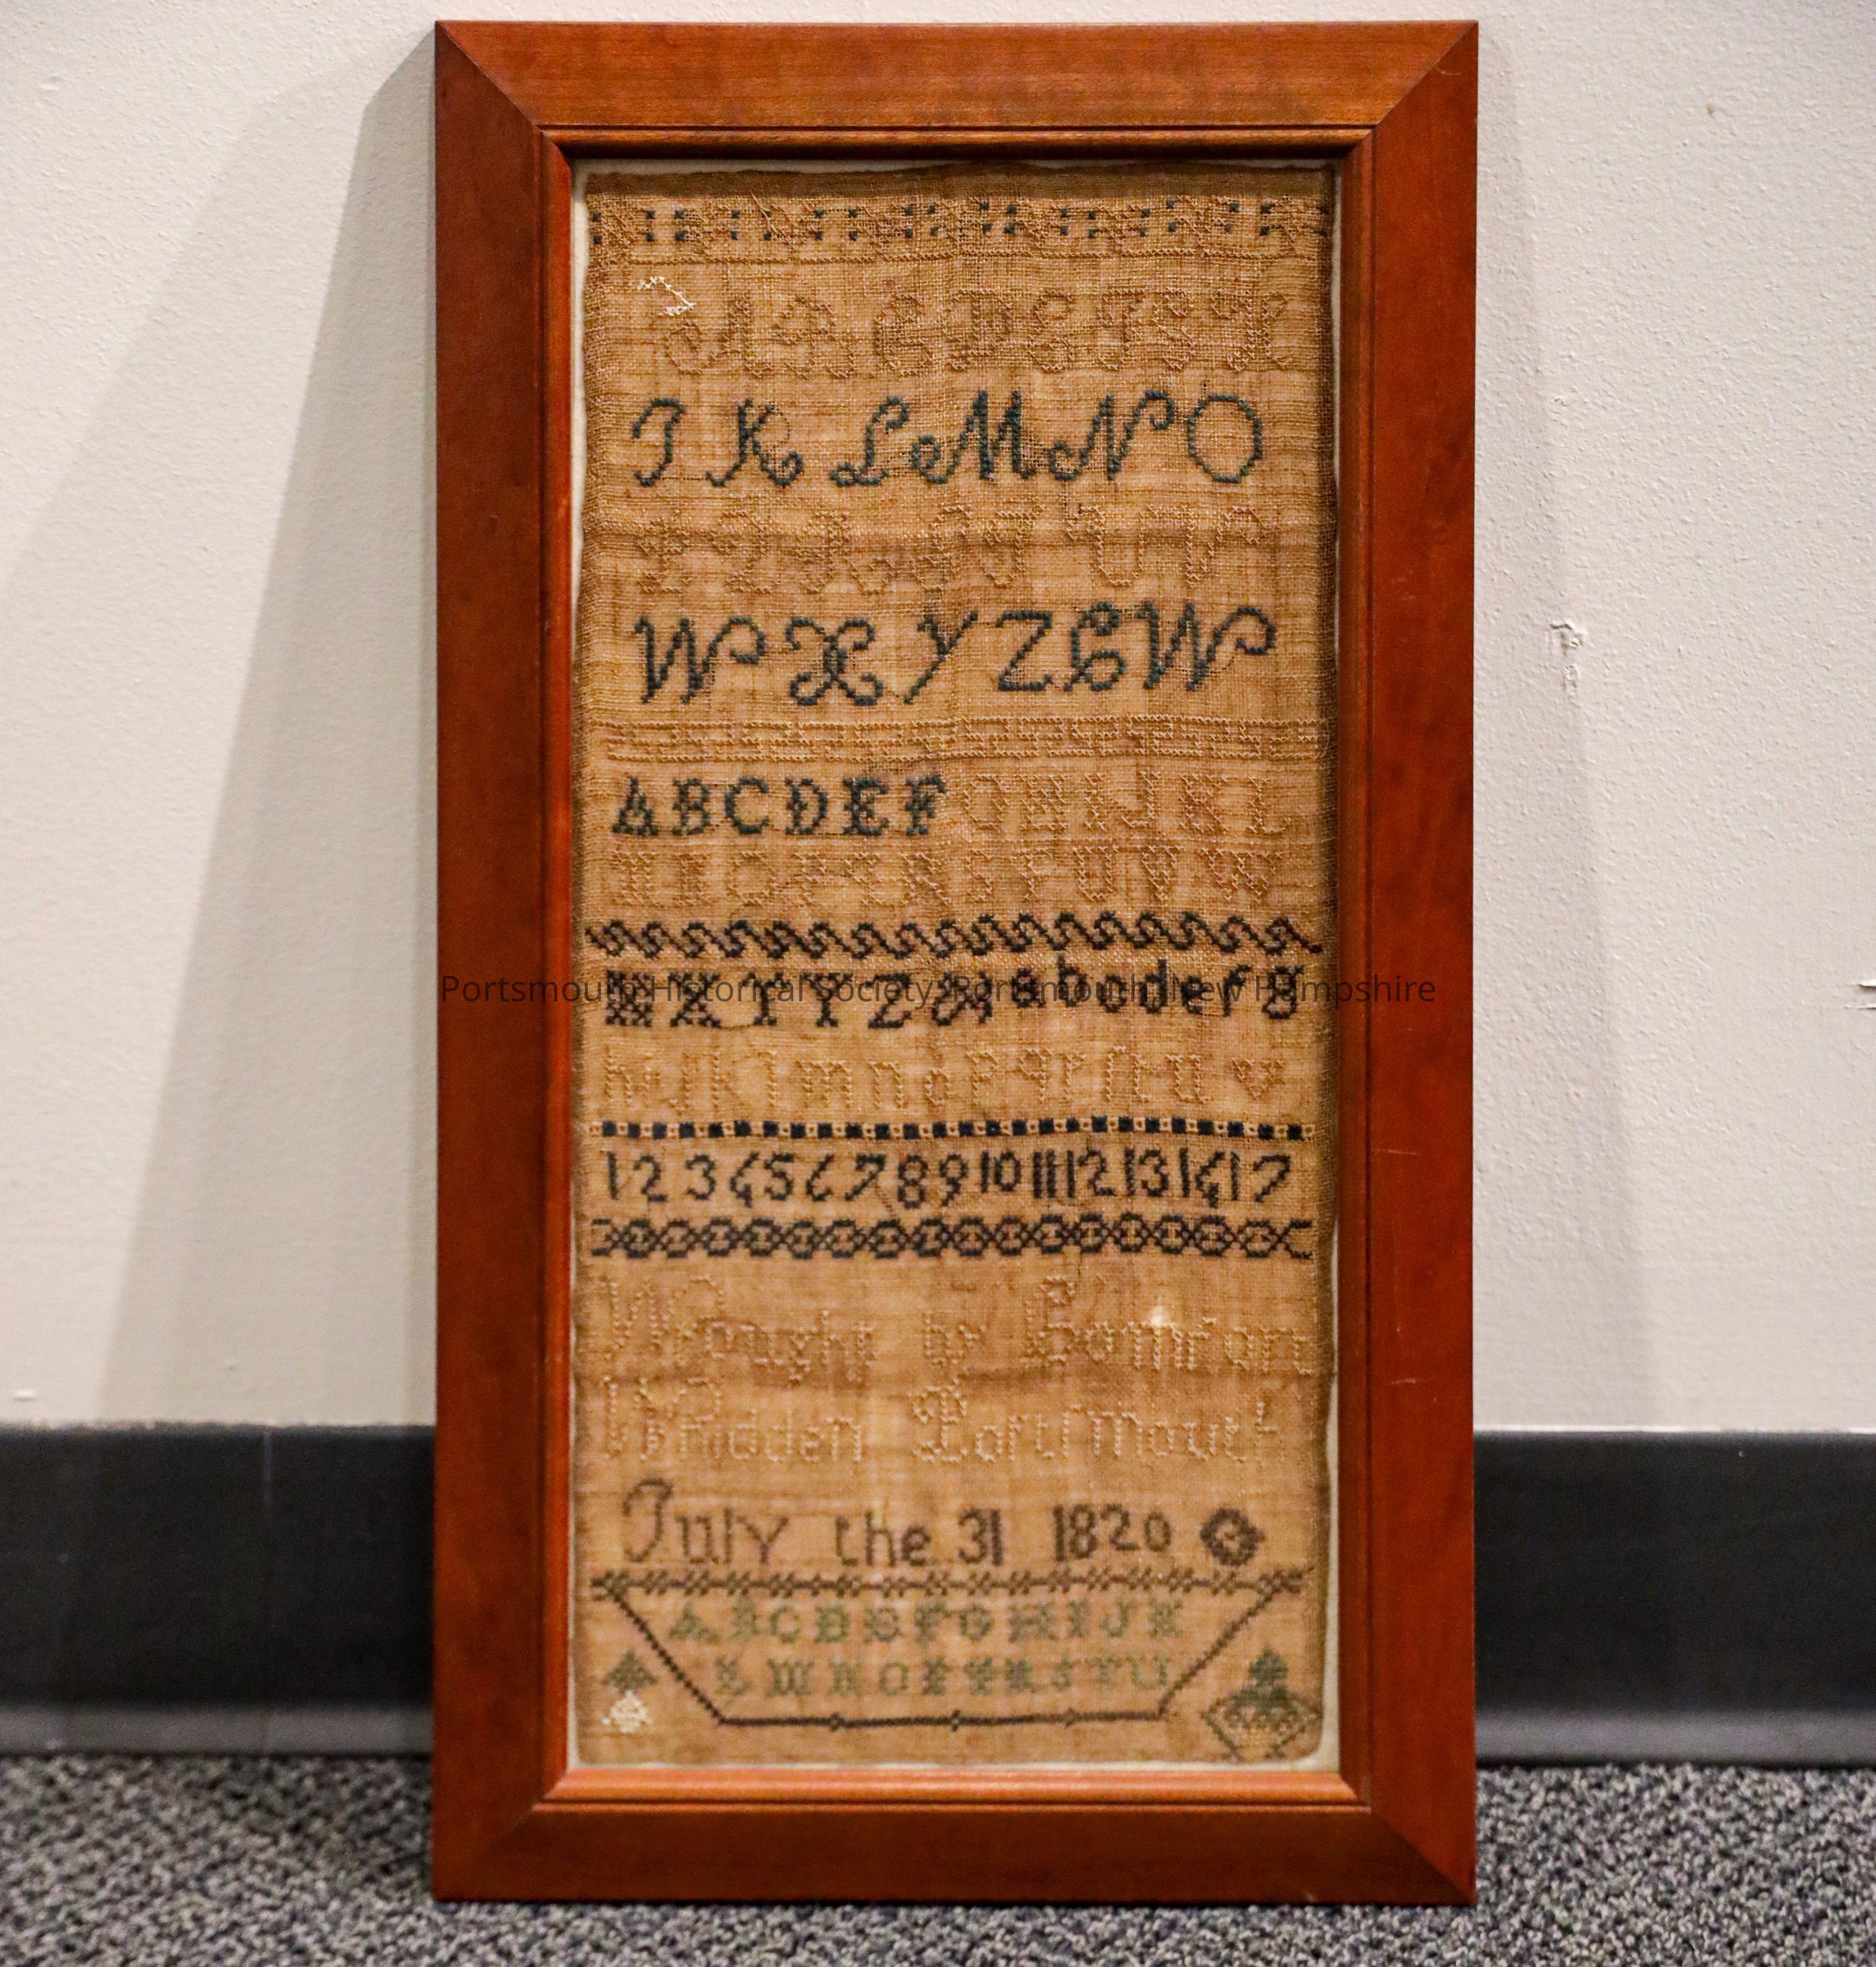 A B C D E F G H
I K L M N O
P Q R S T U V
W X Y Z C W
A B C D E F G H I J K L
M N O P Q R S T U V W
W X Y Y Z & a b c d e f g
h i j k l m n o p q r ſ t u
1 2 3 4 5 6 7 8 9 10 11 12 13 14 17
Wrought by
Whidden Portſmouth
July the 31 1820
A B C D E F G H I J K
L M N O P Q R S T U
Portsmouth Historical Society, Portsmouth, New Hampshire